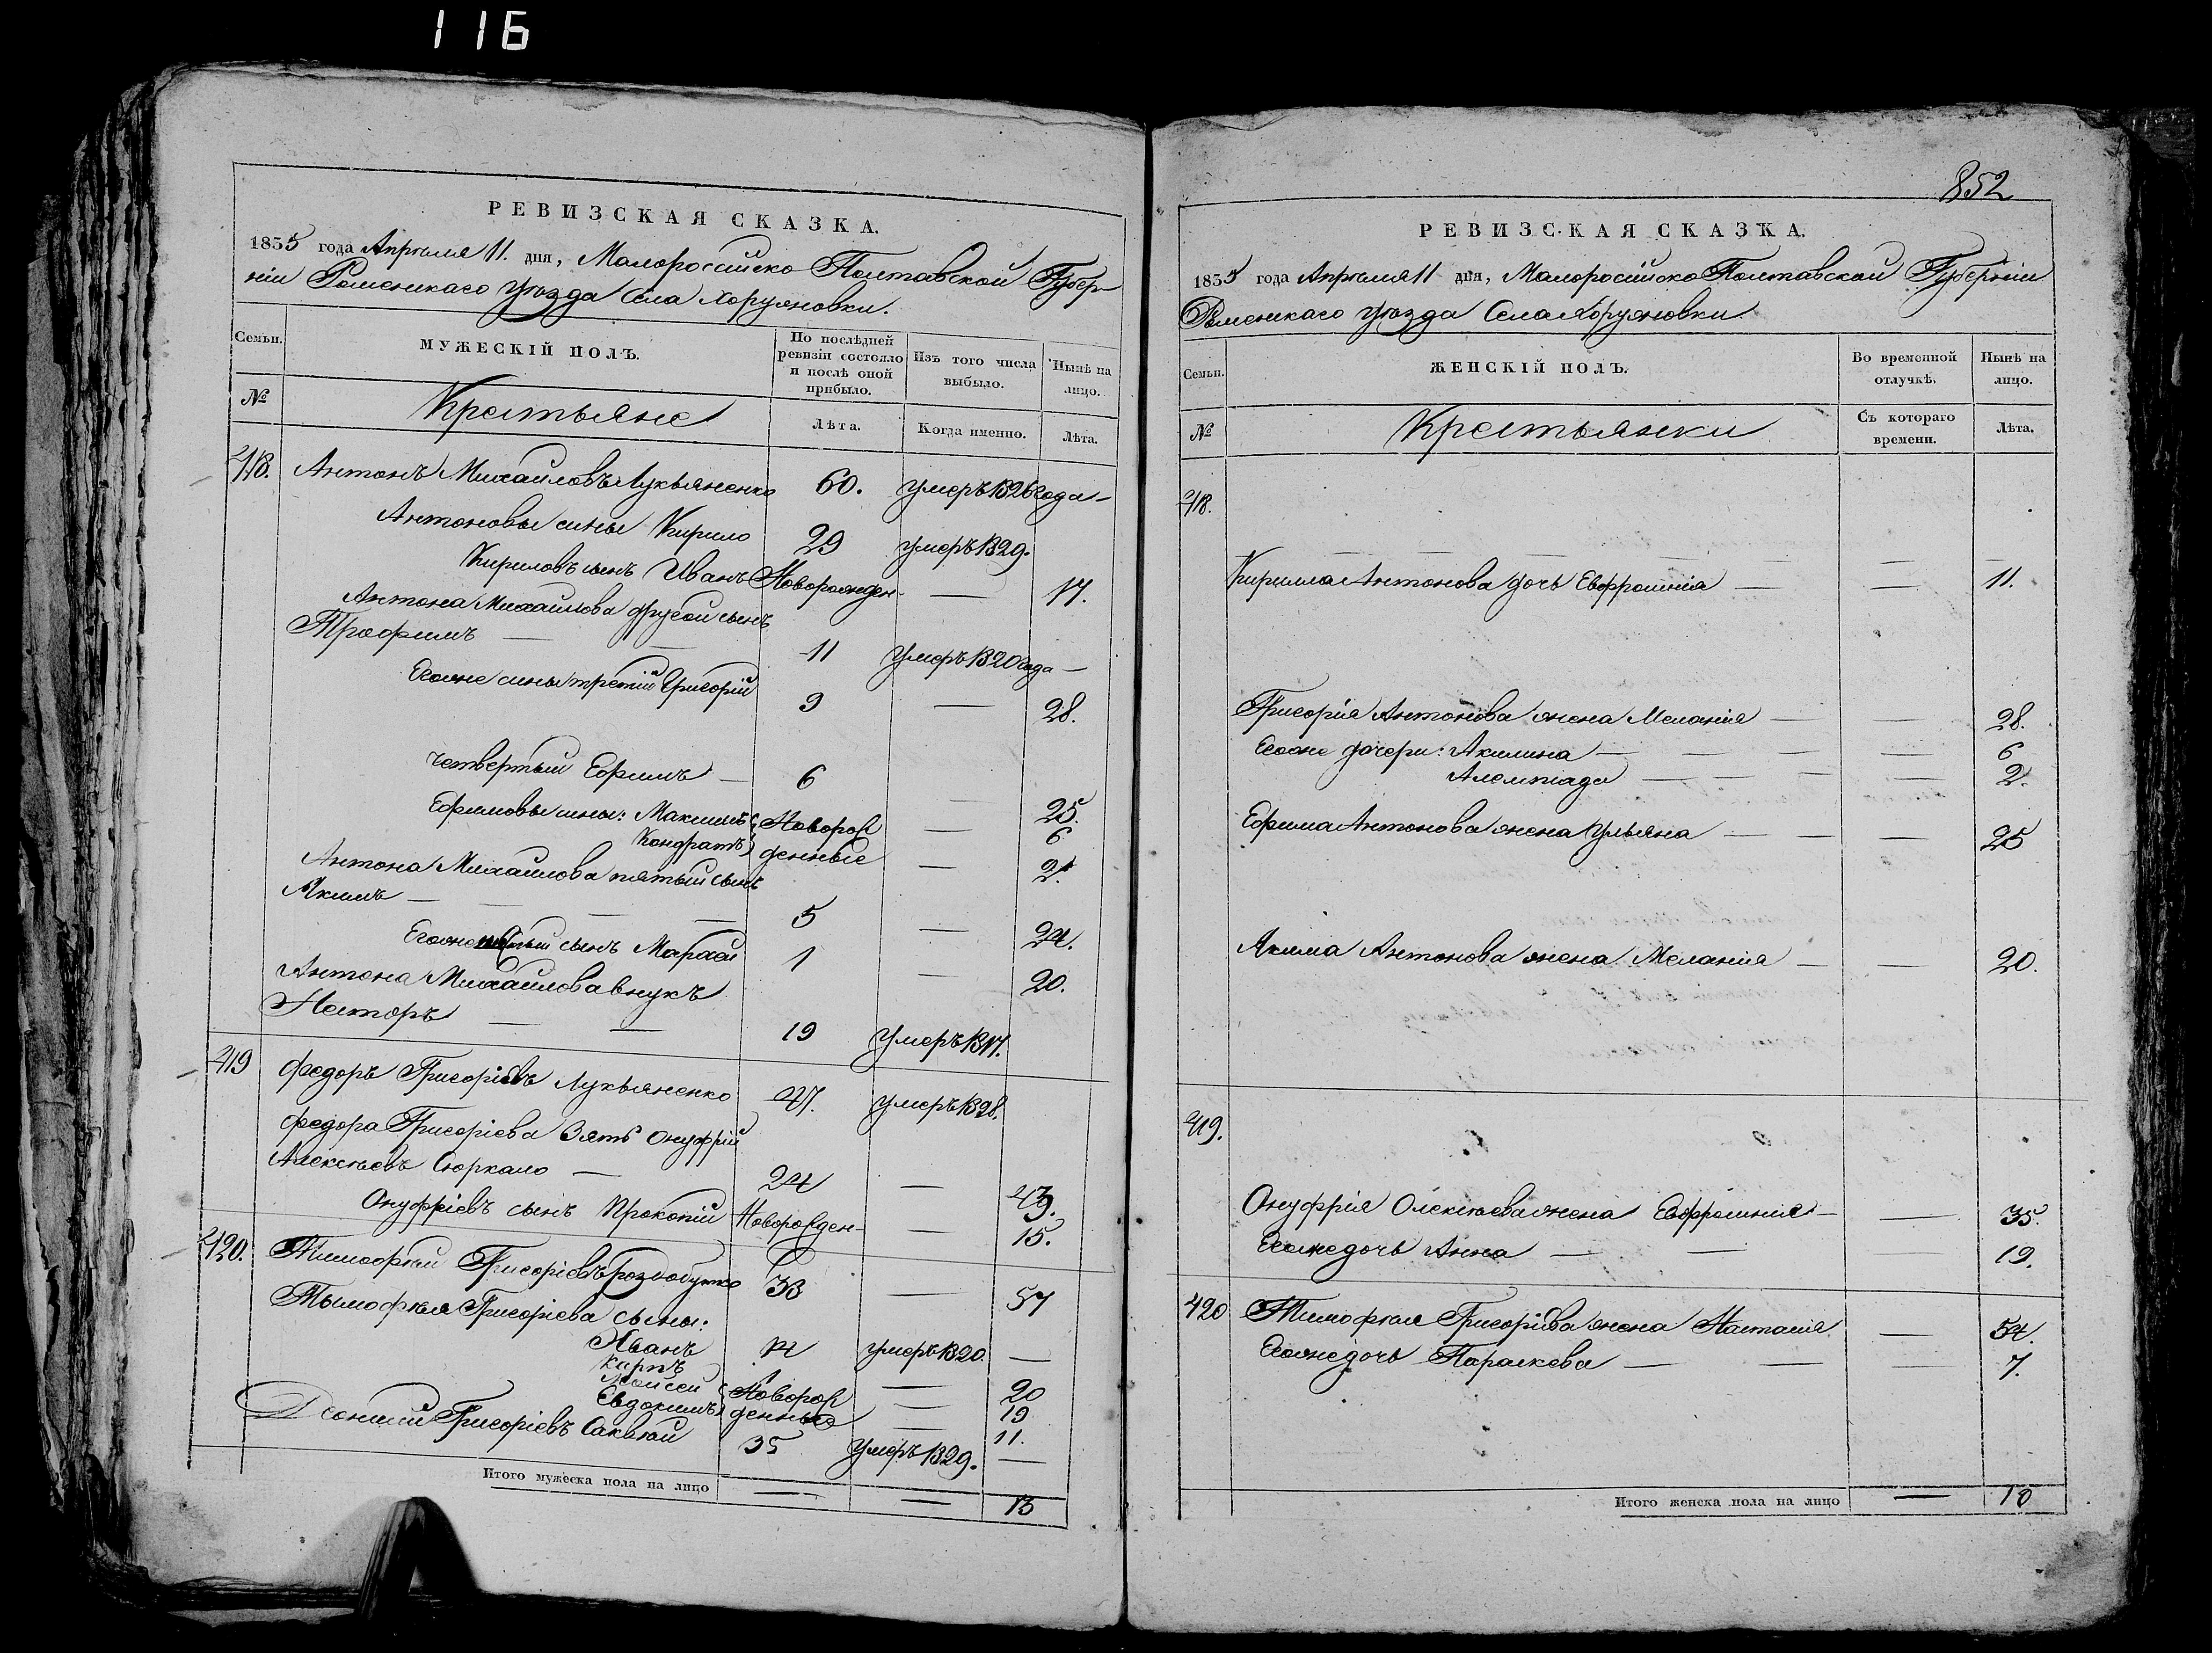 116
РЕВИЗСКАЯ СКАЗКА.
1835 года Апреля 11. дня, Малоросийско Полтавской Губер-
ніи Роменскаго уезда Села Хоружовки.
Семьи.
МУЖЕСКІЙ ПОЛЪ.
По послѣдней ревизіи состояло и послѣ оной прибыло.
Изъ того числа выбыло.
Нынѣ на лицо.
№
Крестьяне
Лѣта.
Когда именно.
Лѣта.
418. Антонъ Михайловъ Лукьяненко 60. умеръ 1826 года —
Антоновы сины Кирило 29 умеръ 1829.
Кириловъ сынъ Иванъ Новорожден- — 17.
Антона Михайлова другой сынъ
Трофимъ — — 11 умеръ 1820 года —
Егоже сины третій Григорій 9 — 28.
четвертый Ефимъ — 6 — 25.
Ефимовы сины: Максимъ Новорож — 6
Кондратъ денные — 2.
Антона Михайлова пятый сынъ
Якимъ — — — — 5 — 24.
Егоже сынъ Марфей 1 — 20.
Антона Михайлова внукъ
Несторъ — — 19 умеръ 1817.
419 Федоръ Григоріевъ Лукьяненко 47. умеръ 1828.
Федора Григоріева Зять Онуфрій
Алексѣевъ Сюркало — 24 — 43.
Онуфріевъ сынъ Прокопій Новорожден- — 15.
420. Тимофѣй Григоріевъ 38 — 57
Тымофѣя Григоріева сыны:
Иванъ 14 умеръ 1820. —
Карпъ — 20
Моисей Новорож — 19
Евдокимъ денные — 11.
Григоріевъ 35 умеръ 1829. —
Итого мужеска пола на лицо — — 13
852
РЕВИЗСКАЯ СКАЗКА.
1835 года Апреля 11 дня, Малоросійско Полтавской Губерніи
Роменскаго уезда Села Хоружовки
Семьи.
ЖЕНСКІЙ ПОЛЪ.
Во временной отлучкѣ.
Нынѣ на лицо.
№
Крестьянки
Съ котораго времени.
Лѣта.
418.
Кирилла Антонова дочь Евфросинія — — 11.
Григорія Антонова жена Меланія — — 28.
Егоже дочери: Акилина — — — — 6
Алемпіада — — — — 2.
Ефима Антонова жена Ульяна — — — 25
Акима Антонова жена Меланія — — 20.
419.
Онуфрія Олексѣева жена Евфросинія — — 35.
Егоже дочь Анна — — 19.
420 Тимофѣя Григоріева жена Настасія — 54.
Егоже дочь Параскева — — 7.
Итого женска пола на лицо — 10